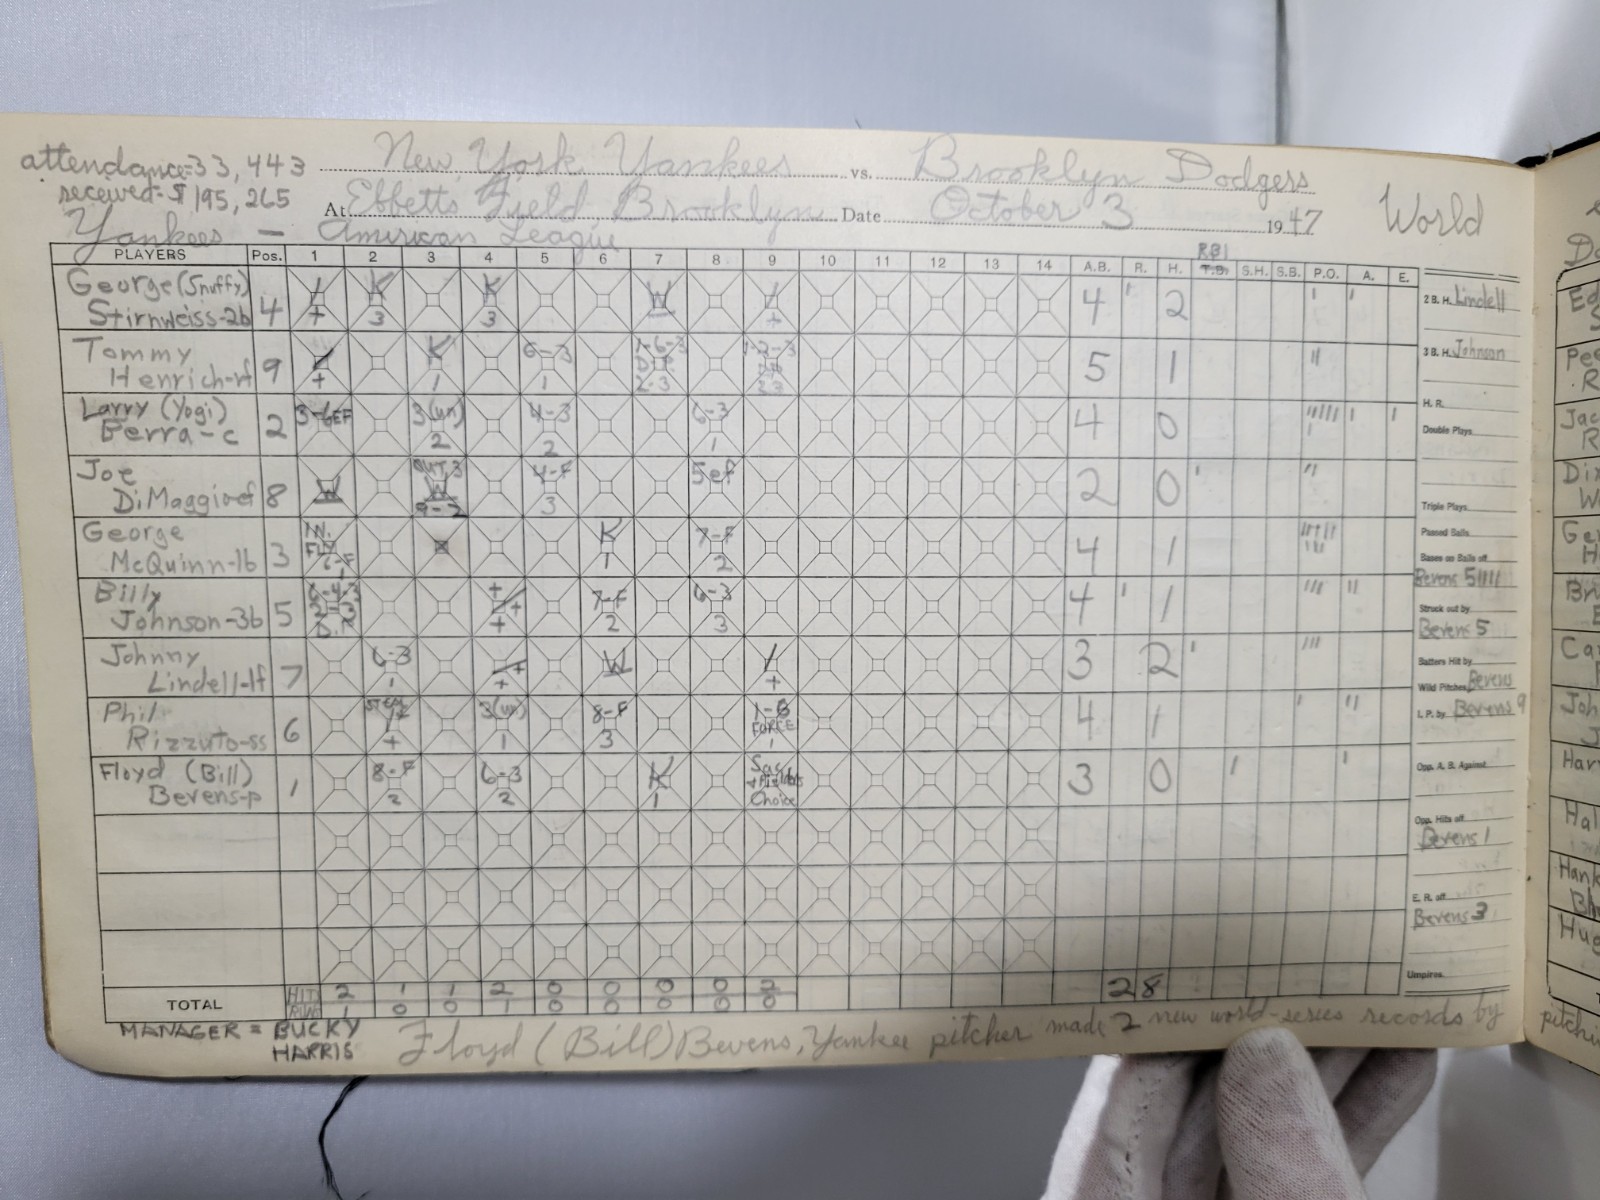 attendance=33,443
New York Yankees vs. Brooklyn Dodgers
received-$195,265
At Ebbetts Field Brooklyn Date October 3 1947
World
Yankees — American League
PLAYERS Pos. 1 2 3 4 5 6 7 8 9 10 11 12 13 14 A.B. R. H. RBI T.B. S.H. S.B. P.O. A. E.
George (Snuffy)
Stirnweiss-2b 4 K 3 K 3 W 4 ' 2 ' '
2 B. H. Lindell
Tommy
Henrich-rf 9 K 1 6-3 1 1-6-3 D.P. 2-3 1-2-3 D.P. 2-3 5 1 "
3 B. H. Johnson
Larry (Yogi)
Berra-c 2 3-6EF 3(un) 2 4-3 2 6-3 1 4 0
H. R.
Double Plays
Joe
DiMaggio-cf 8 W OUT, 3 W 9-2 4-F 3 5ef 2 0 ' "
Triple Plays
George
McQuinn-1b 3 IN. FLY 6-F 1 K 1 7-F 2 4 1
Passed Balls
Bases on Balls off
Bevens 5
Billy
Johnson-3b 5 6-4-3 2-3 D.P. 7-F 2 6-3 3 4 ' 1 ''' "
Struck out by
Bevens 5
Johnny
Lindell-lf 7 6-3 1 W 3 2 ' '''
Batters Hit by
Wild Pitches Bevens
Phil
Rizzuto-ss 6 3(un) 1 8-F 3 1-6 FORCE 1 4 1 ' "
I. P. by Bevens 9
Floyd (Bill)
Bevens-p 1 8-F 2 6-3 2 K 1 Sac + Fielders Choice 3 0 ' '
Opp. A. B. Against
Opp. Hits off
Bevens 1
E. R. off
Bevens 3
Umpires
TOTAL HITS 2 1 1 2 0 0 0 0 2 28
RUNS 1 0 0 1 0 0 0 0 0
MANAGER = BUCKY
HARRIS
Floyd (Bill) Bevens, Yankee pitcher made 2 new world-series records by